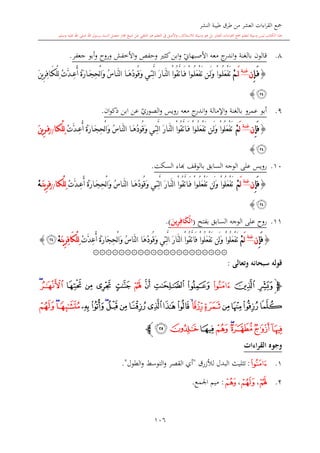 جمع القراءات العشر من طرق طيبة النشر
٨. قالون بالغنة واندرج معه الأصبهاني وابن كثير وحفص والأخفش وروح وأبو جعفر.
﴿ فَإِن لَّمْ تَفْعَلُوا۟ وَلَن تَفْعَلُوا۟ فَٱتَّقُوا۟ ٱلنَّارَ ٱلَّتِى وَقُودُهَا ٱلنَّاسُ وَٱلْحِجَارَةُ أُعِدَّتْ لِلْكَٰفِرِينَ
﴿٢٤﴾
٩. أبو عمرو بالغنة والإمالة واندرج معه رويس والصوري عن ابن ذكوان.
﴿ فَإِن لَّمْ تَفْعَلُوا۟ وَلَن تَفْعَلُوا۟ فَٱتَّقُوا۟ ٱلنَّارَ ٱلَّتِى وَقُودُهَا ٱلنَّاسُ وَٱلْحِجَارَةُ أُعِدَّتْ لِلْكَٰفِرِينَ
﴿٢٤﴾
١٠. رويس على الوجه السابق بالوقف بهاء السكت.
﴿ فَإِن لَّمْ تَفْعَلُوا۟ وَلَن تَفْعَلُوا۟ فَٱتَّقُوا۟ ٱلنَّارَ ٱلَّتِى وَقُودُهَا ٱلنَّاسُ وَٱلْحِجَارَةُ أُعِدَّتْ لِلْكَٰفِرِينَهْ
﴿٢٤﴾
١١. روح على الوجه السابق بفتح (الْكَافِرِينَ).
﴿ فَإِن لَّمْ تَفْعَلُوا۟ وَلَن تَفْعَلُوا۟ فَٱتَّقُوا۟ ٱلنَّارَ ٱلَّتِى وَقُودُهَا ٱلنَّاسُ وَٱلْحِجَارَةُ أُعِدَّتْ لِلْكَٰفِرِينَهْ ﴿٢٤﴾
قوله سبحانه وتعالى :
﴿ وَبَشِّرِ ٱلَّذِينَ ءَامَنُوا۟ وَعَمِلُوا۟ ٱلصَّٰلِحَٰتِ أَنَّ لَهُمْ جَنَّٰتٍ تَجْرِى مِن تَحْتِهَا ٱلْأَنْهَٰرُ
كُلَّمَا رُزِقُوا۟ مِنْهَا مِن ثَمَرَةٍ رِّزْقًا قَالُوا۟ هَٰذَا ٱلَّذِى رُزِقْنَا مِن قَبْلُ وَأُتُوا۟ بِهِۦ مُتَشَٰبِهًا وَلَهُمْ
فِيهَا أَزْوَٰجٌ مُّطَهَّرَةٌ وَهُمْ فِيهَا خَٰلِدُونَ ﴿٢٥﴾
وجوه القراءات
١. ءَامَنُوا۟: تثليث البدل للأزرق "أي القصر والتوسط والطول".
٢. لَهُمْ، وَلَهُمْ، وَهُمْ: ميم الجمع.
١٠٦